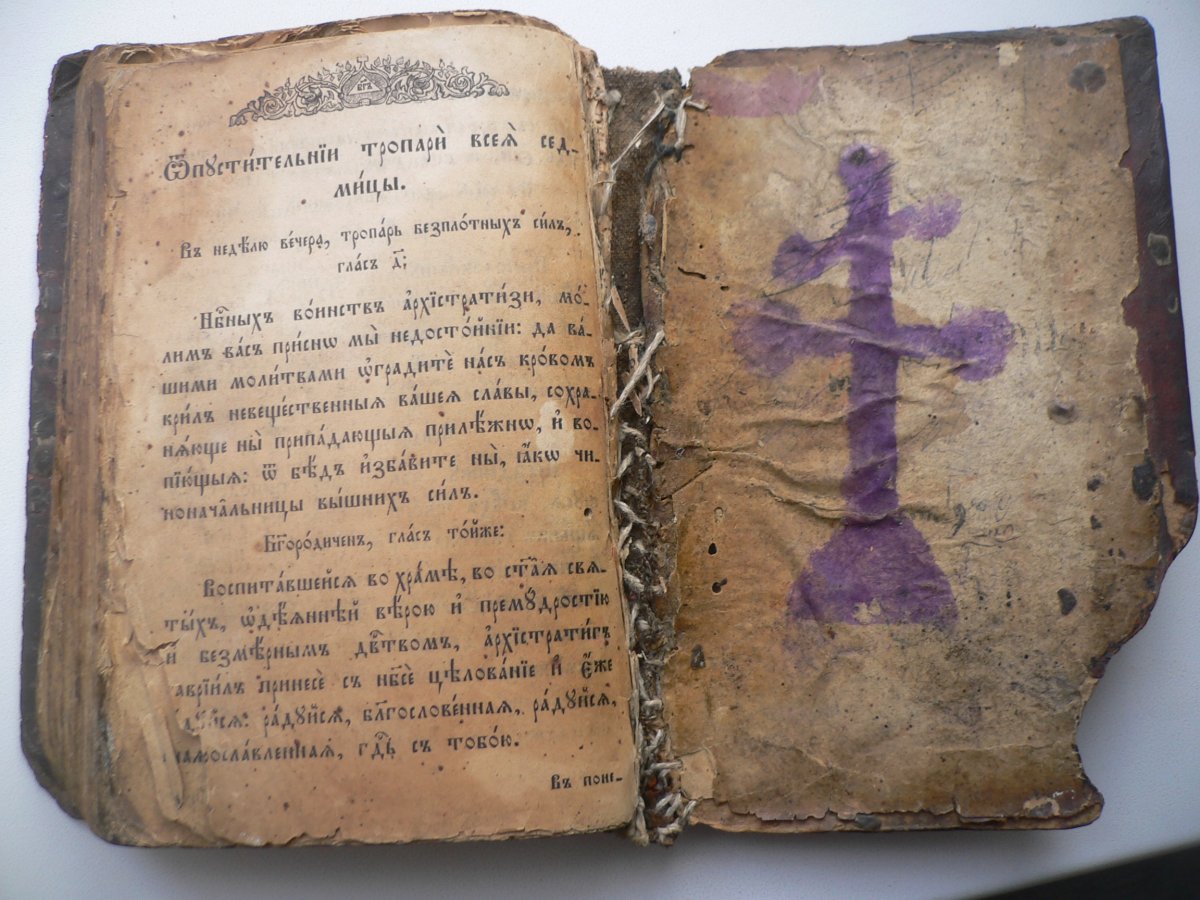 БГЪ
Ѿпꙋсти́тельнїи тропари̑ всеѧ̀ сед-
ми́цы.
Въ недѣ́лю ве́чера, тропа́рь безпло́тныхъ си́лъ,
гла́съ д҃:
Нбⷭ҇ныхъ во́инствъ а҆рхїстрати́зи, мо́-
лимъ ва́съ при́снѡ мы̀ недосто́йнїи: да ва́-
шими моли́твами ѡ҆градитѐ на́съ кро́вомъ
кри́лъ невеще́ственныѧ ва́шеѧ сла́вы, сохра-
нѧ́юще ны̀ припа́дающыѧ прилѣ́жнѡ, и҆ во-
пїю́щыѧ: ѿ бѣ́дъ и҆зба́вите ны̀, ꙗ҆́кѡ чи-
нонача́льницы вы́шнихъ си́лъ.
Бг҃оро́диченъ, гла́съ то́йже:
Воспита́вшейсѧ во хра́мѣ, во ст҃а́ѧ свѧ-
ты́хъ, ѡ҆дѣ́ѧннѣй вѣ́рою и҆ премꙋ́дростїю
и҆ безмѣ́рнымъ дв҃твомъ, а҆рхїстрати́гъ
гаврїи́лъ принесѐ съ нб҃сѐ цѣлова́нїе и҆ є҆́же
ра́дꙋйсѧ: ра́дꙋйсѧ, блгⷭ҇ове́ннаѧ, ра́дꙋйсѧ,
сла́внаѧ, гдⷭ҇ь съ тобо́ю.
Въ поне-